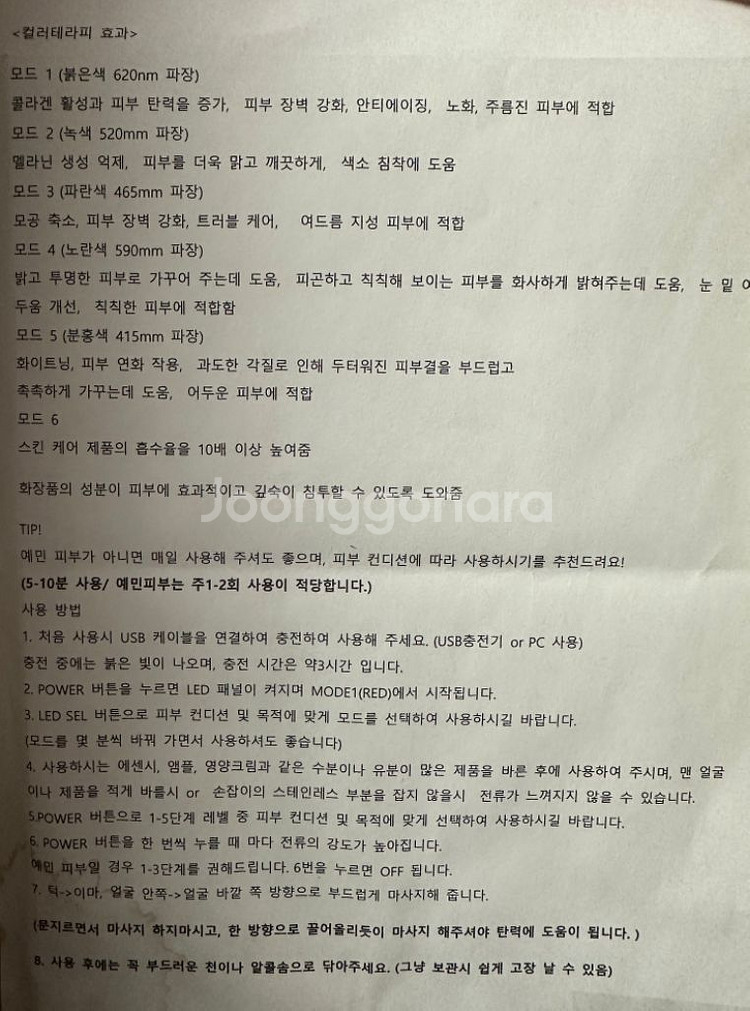 <컬러테라피 효과>
모드 1 (붉은색 620nm 파장)
콜라겐 활성과 피부 탄력을 증가, 피부 장벽 강화, 안티에이징, 노화, 주름진 피부에 적합
모드 2 (녹색 520mm 파장)
멜라닌 생성 억제, 피부를 더욱 맑고 깨끗하게, 색소 침착에 도움
모드 3 (파란색 465mm 파장)
모공 축소, 피부 장벽 강화, 트러블 케어, 여드름 지성 피부에 적합
모드 4 (노란색 590mm 파장)
밝고 투명한 피부로 가꾸어 주는데 도움, 피곤하고 칙칙해 보이는 피부를 화사하게 밝혀주는데 도움, 눈 밑 어
두움 개선, 칙칙한 피부에 적합함
모드 5 (분홍색 415mm 파장)
화이트닝, 피부 연화 작용, 과도한 각질로 인해 두터워진 피부결을 부드럽고
촉촉하게 가꾸는데 도움, 어두운 피부에 적합
모드 6
스킨 케어 제품의 흡수율을 10배 이상 높여줌
화장품의 성분이 피부에 효과적이고 깊숙이 침투할 수 있도록 도와줌
Joonggonara
TIP!
예민 피부가 아니면 매일 사용해 주셔도 좋으며, 피부 컨디션에 따라 사용하시기를 추천드려요!
(5-10분 사용/ 예민피부는 주1-2회 사용이 적당합니다.)
사용 방법
1. 처음 사용시 USB 케이블을 연결하여 충전하여 사용해 주세요. (USB충전기 or PC 사용)
충전 중에는 붉은 빛이 나오며, 충전 시간은 약3시간 입니다.
2. POWER 버튼을 누르면 LED 패널이 켜지며 MODE1(RED)에서 시작됩니다.
3. LED SEL 버튼으로 피부 컨디션 및 목적에 맞게 모드를 선택하여 사용하시길 바랍니다.
(모드를 몇 분씩 바꿔 가면서 사용하셔도 좋습니다)
4. 사용하시는 에센시, 앰플, 영양크림과 같은 수분이나 유분이 많은 제품을 바른 후에 사용하여 주시며, 맨 얼굴
이나 제품을 적게 바를시 or 손잡이의 스테인레스 부분을 잡지 않을시 전류가 느껴지지 않을 수 있습니다.
5.POWER 버튼으로 1-5단계 레벨 중 피부 컨디션 및 목적에 맞게 선택하여 사용하시길 바랍니다.
6. POWER 버튼을 한 번씩 누를 때 마다 전류의 강도가 높아집니다.
예민 피부일 경우 1-3단계를 권해드립니다. 6번을 누르면 OFF 됩니다.
7. 턱->이마, 얼굴 안쪽->얼굴 바깥 쪽 방향으로 부드럽게 마사지해 줍니다.
(문지르면서 마사지 하지마시고, 한 방향으로 끌어올리듯이 마사지 해주셔야 탄력에 도움이 됩니다. )
8. 사용 후에는 꼭 부드러운 천이나 알콜솜으로 닦아주세요. (그냥 보관시 쉽게 고장 날 수 있음)